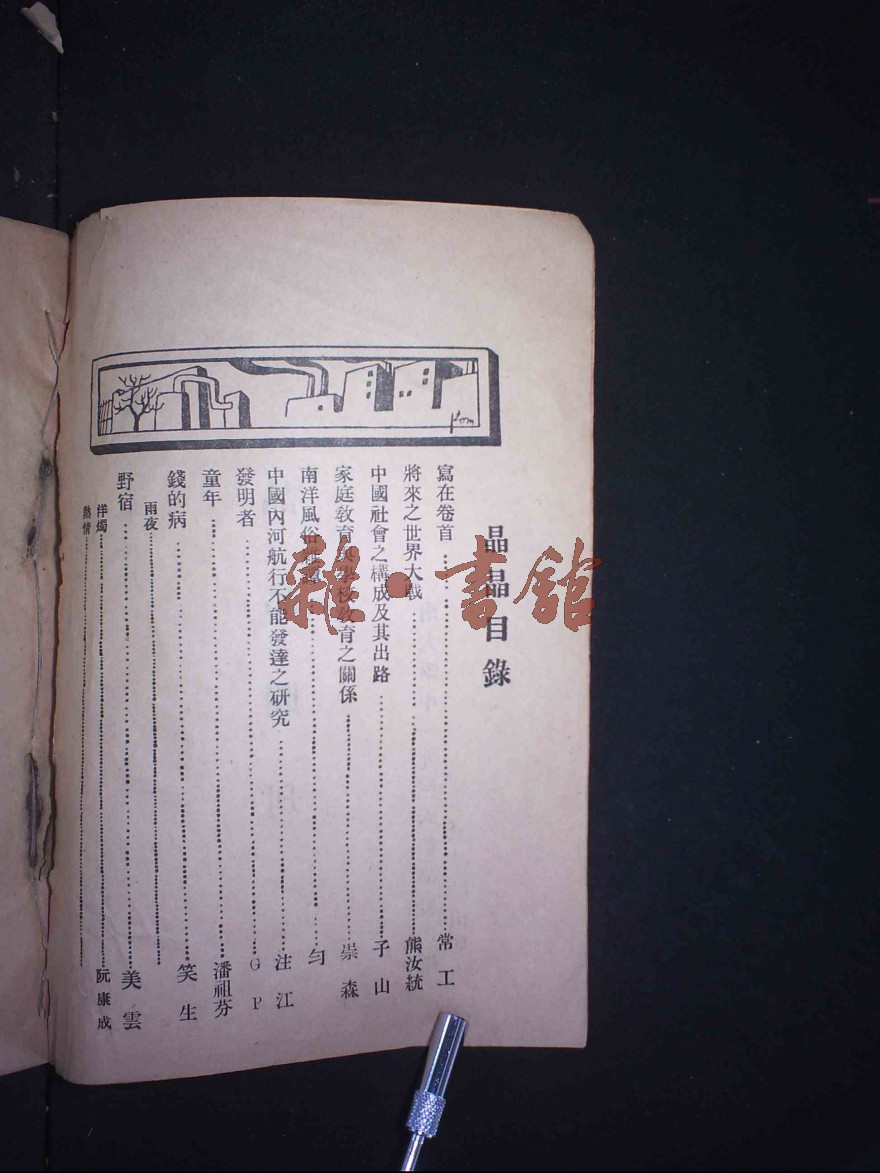 晶晶目錄
寫在卷首 常工
將來之世界大戰 熊汝統
中國社會之構成及其出路 子山
家庭教育與學校教育之關係 崇森
南洋風俗雜譚 勻
中國內河航行不能發達之研究 注江
發明者 G P
童年 潘祖芬
錢的病 笑生
雨夜
野宿 美雲
洋燭 阮康成
熱情
雜·書館